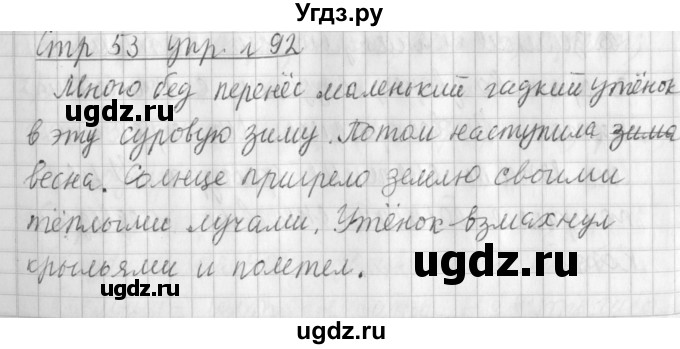 Угdз.ру
Стр 53 упр. № 92
Много бед перенёс маленький гадкий утёнок
ugdz.ru ugdz.ru
в эту суровую зиму. Потом наступила зима
весна. Солнце пригрело землю своими
тёплыми лучами. Утёнок взмахнул
крыльями и полетел.
ugdz.ru ugdz.ru ugdz.ru
ugdz.ru